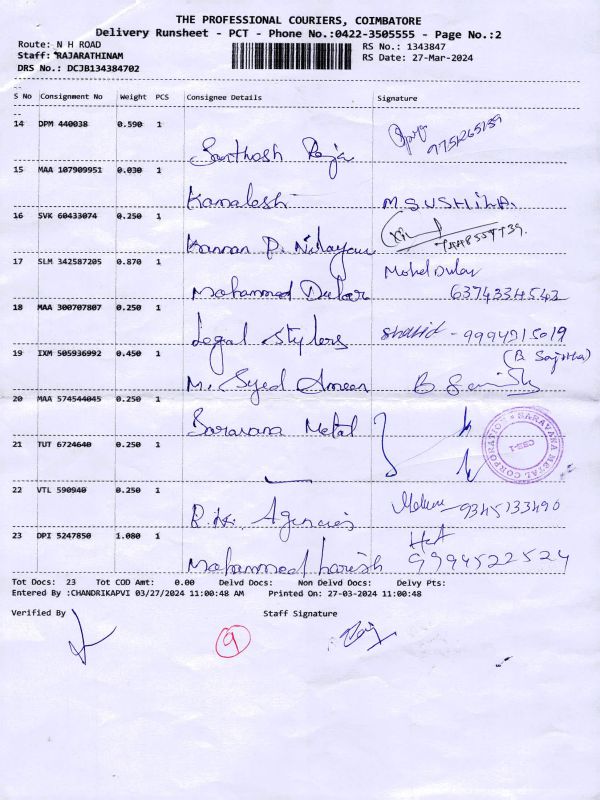 THE PROFESSIONAL COURIERS, COIMBATORE
Delivery Runsheet - PCT - Phone No.:0422-3505555 - Page No.:2
Route: N H ROAD
RS No.: 1343847
Staff: RAJARATHINAM
RS Date: 27-Mar-2024
DRS No.: DCJB134384702
S No Consignment No Weight PCS Consignee Details Signature
14 DPM 440038 0.590 1
Santhosh Raja 9751265159
15 MAA 107909951 0.030 1
Kamalesh M.SUSHILA.
16 SVK 60433074 0.250 1
Kannan P. Nilayam
17 SLM 342587205 0.870 1
Mohamed Dular
Mohammed Dular 6374334542
18 MAA 300707807 0.250 1
Legal Stylers Shahid - 9994915019
19 IXM 505936992 0.450 1
(B Sajitha)
M. Syed Ameen
20 MAA 574544045 0.250 1
Saravana Metal
SARAVANA METAL CORPORATION
21 TUT 6724640 0.250 1
22 VTL 590940 0.250 1
R.K. Agencies 9345133490
23 DPI 5247850 1.080 1
Mohammed harish 9994522524
Tot Docs: 23 Tot COD Amt: 0.00 Delvd Docs: Non Delvd Docs: Delvy Pts:
Entered By :CHANDRIKAPVI 03/27/2024 11:00:48 AM Printed On: 27-03-2024 11:00:48
Verified By Staff Signature
9